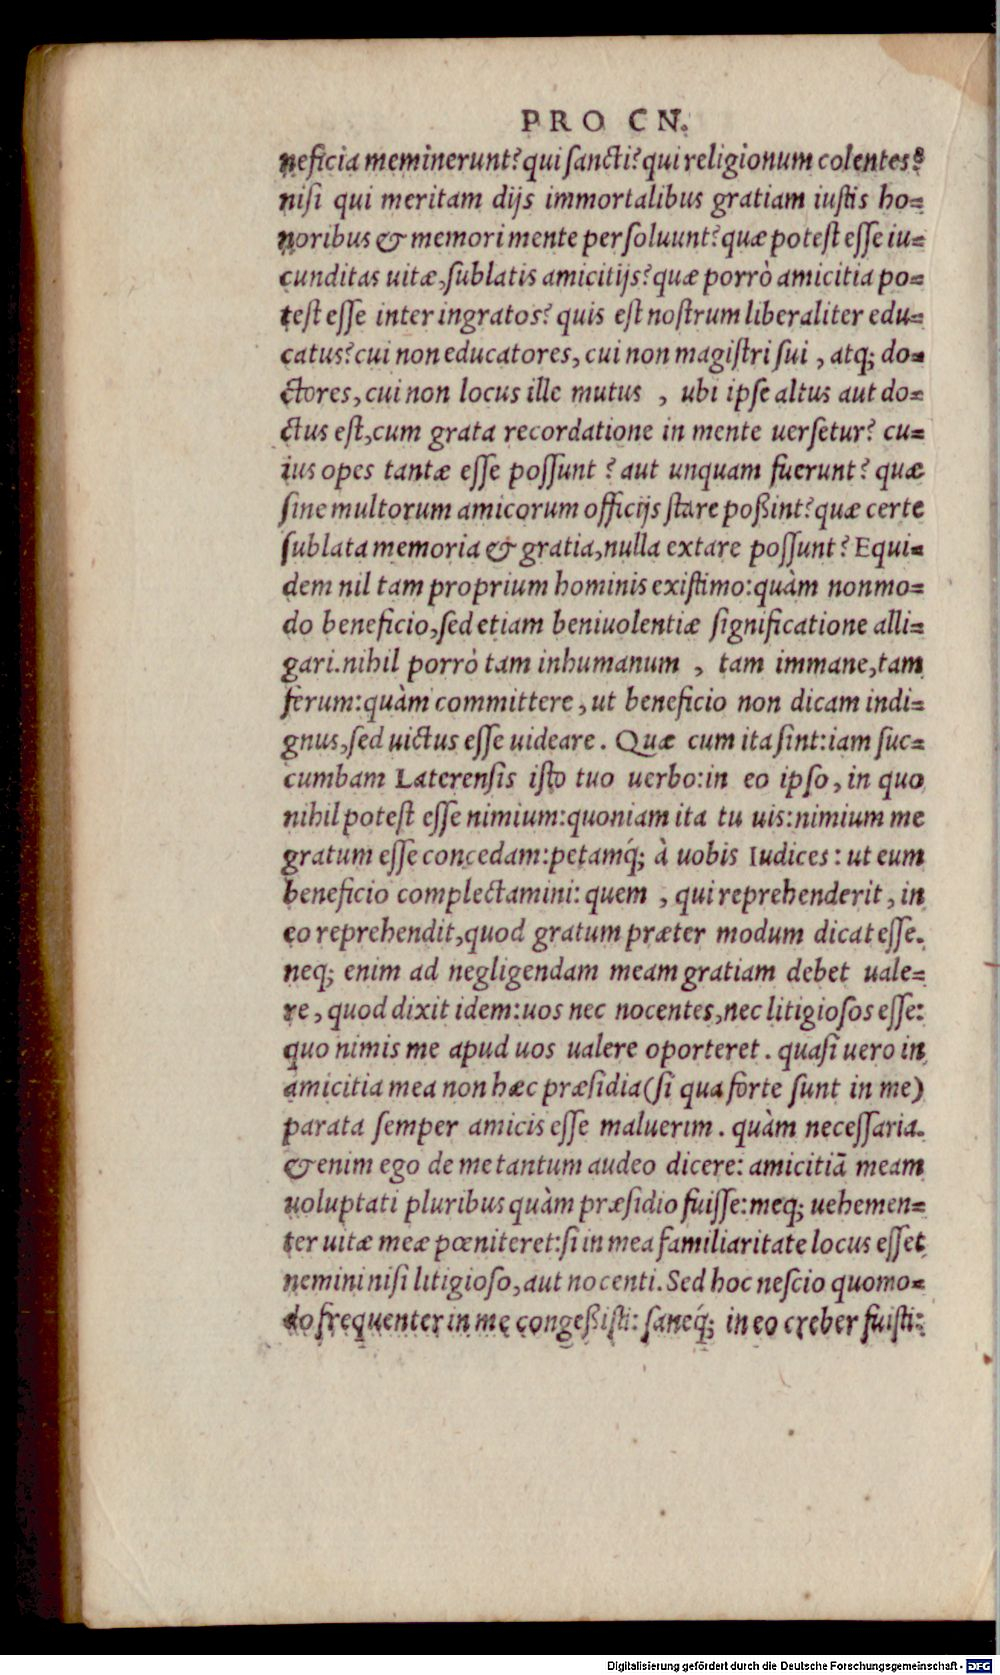 PRO CN.
neficia meminerunt? qui sancti? qui religionum colentes?
nisi qui meritam dijs immortalibus gratiam iustis ho=
noribus & memori mente persoluunt? quæ potest esse iu=
cunditas uitæ, sublatis amicitijs? quæ porrò amicitia po=
test esse inter ingratos? quis est nostrum liberaliter edu=
catus? cui non educatores, cui non magistri sui, atq; do=
ctores, cui non locus ille mutus, ubi ipse altus aut do=
ctus est, cum grata recordatione in mente uersetur? cu=
ius opes tantæ esse possunt? aut unquam fuerunt? quæ
sine multorum amicorum officijs stare poßint? quæ certe
sublata memoria & gratia, nulla extare possunt? Equi=
dem nil tam proprium hominis existimo: quàm nonmo=
do beneficio, sed etiam beniuolentiæ significatione alli=
gari. nihil porrò tam inhumanum, tam immane, tam
ferum: quàm committere, ut beneficio non dicam indi=
gnus, sed uictus esse uideare. Quæ cum ita sint: iam suc=
cumbam Laterensis isto tuo uerbo: in eo ipso, in quo
nihil potest esse nimium: quoniam ita tu uis: nimium me
gratum esse concedam: petamq́; à uobis Iudices: ut eum
beneficio complectamini: quem, qui reprehenderit, in
eo reprehendit, quod gratum præter modum dicat esse.
neq; enim ad negligendam meam gratiam debet uale=
re, quod dixit idem: uos nec nocentes, nec litigiosos esse:
quo nimis me apud uos ualere oporteret. quasi uero in
amicitia mea non hæc præsidia (si qua forte sunt in me)
parata semper amicis esse maluerim. quàm necessaria.
& enim ego de me tantum audeo dicere: amicitiā meam
uoluptati pluribus quàm præsidio fuisse: meq; uehemen=
ter uitæ meæ pœniteret: si in mea familiaritate locus esset
nemini nisi litigioso, aut nocenti. Sed hoc nescio quomo=
do frequenter in me congeßisti: saneq́; in eo creber fuisti:
Digitalisierung gefördert durch die Deutsche Forschungsgemeinschaft - DFG